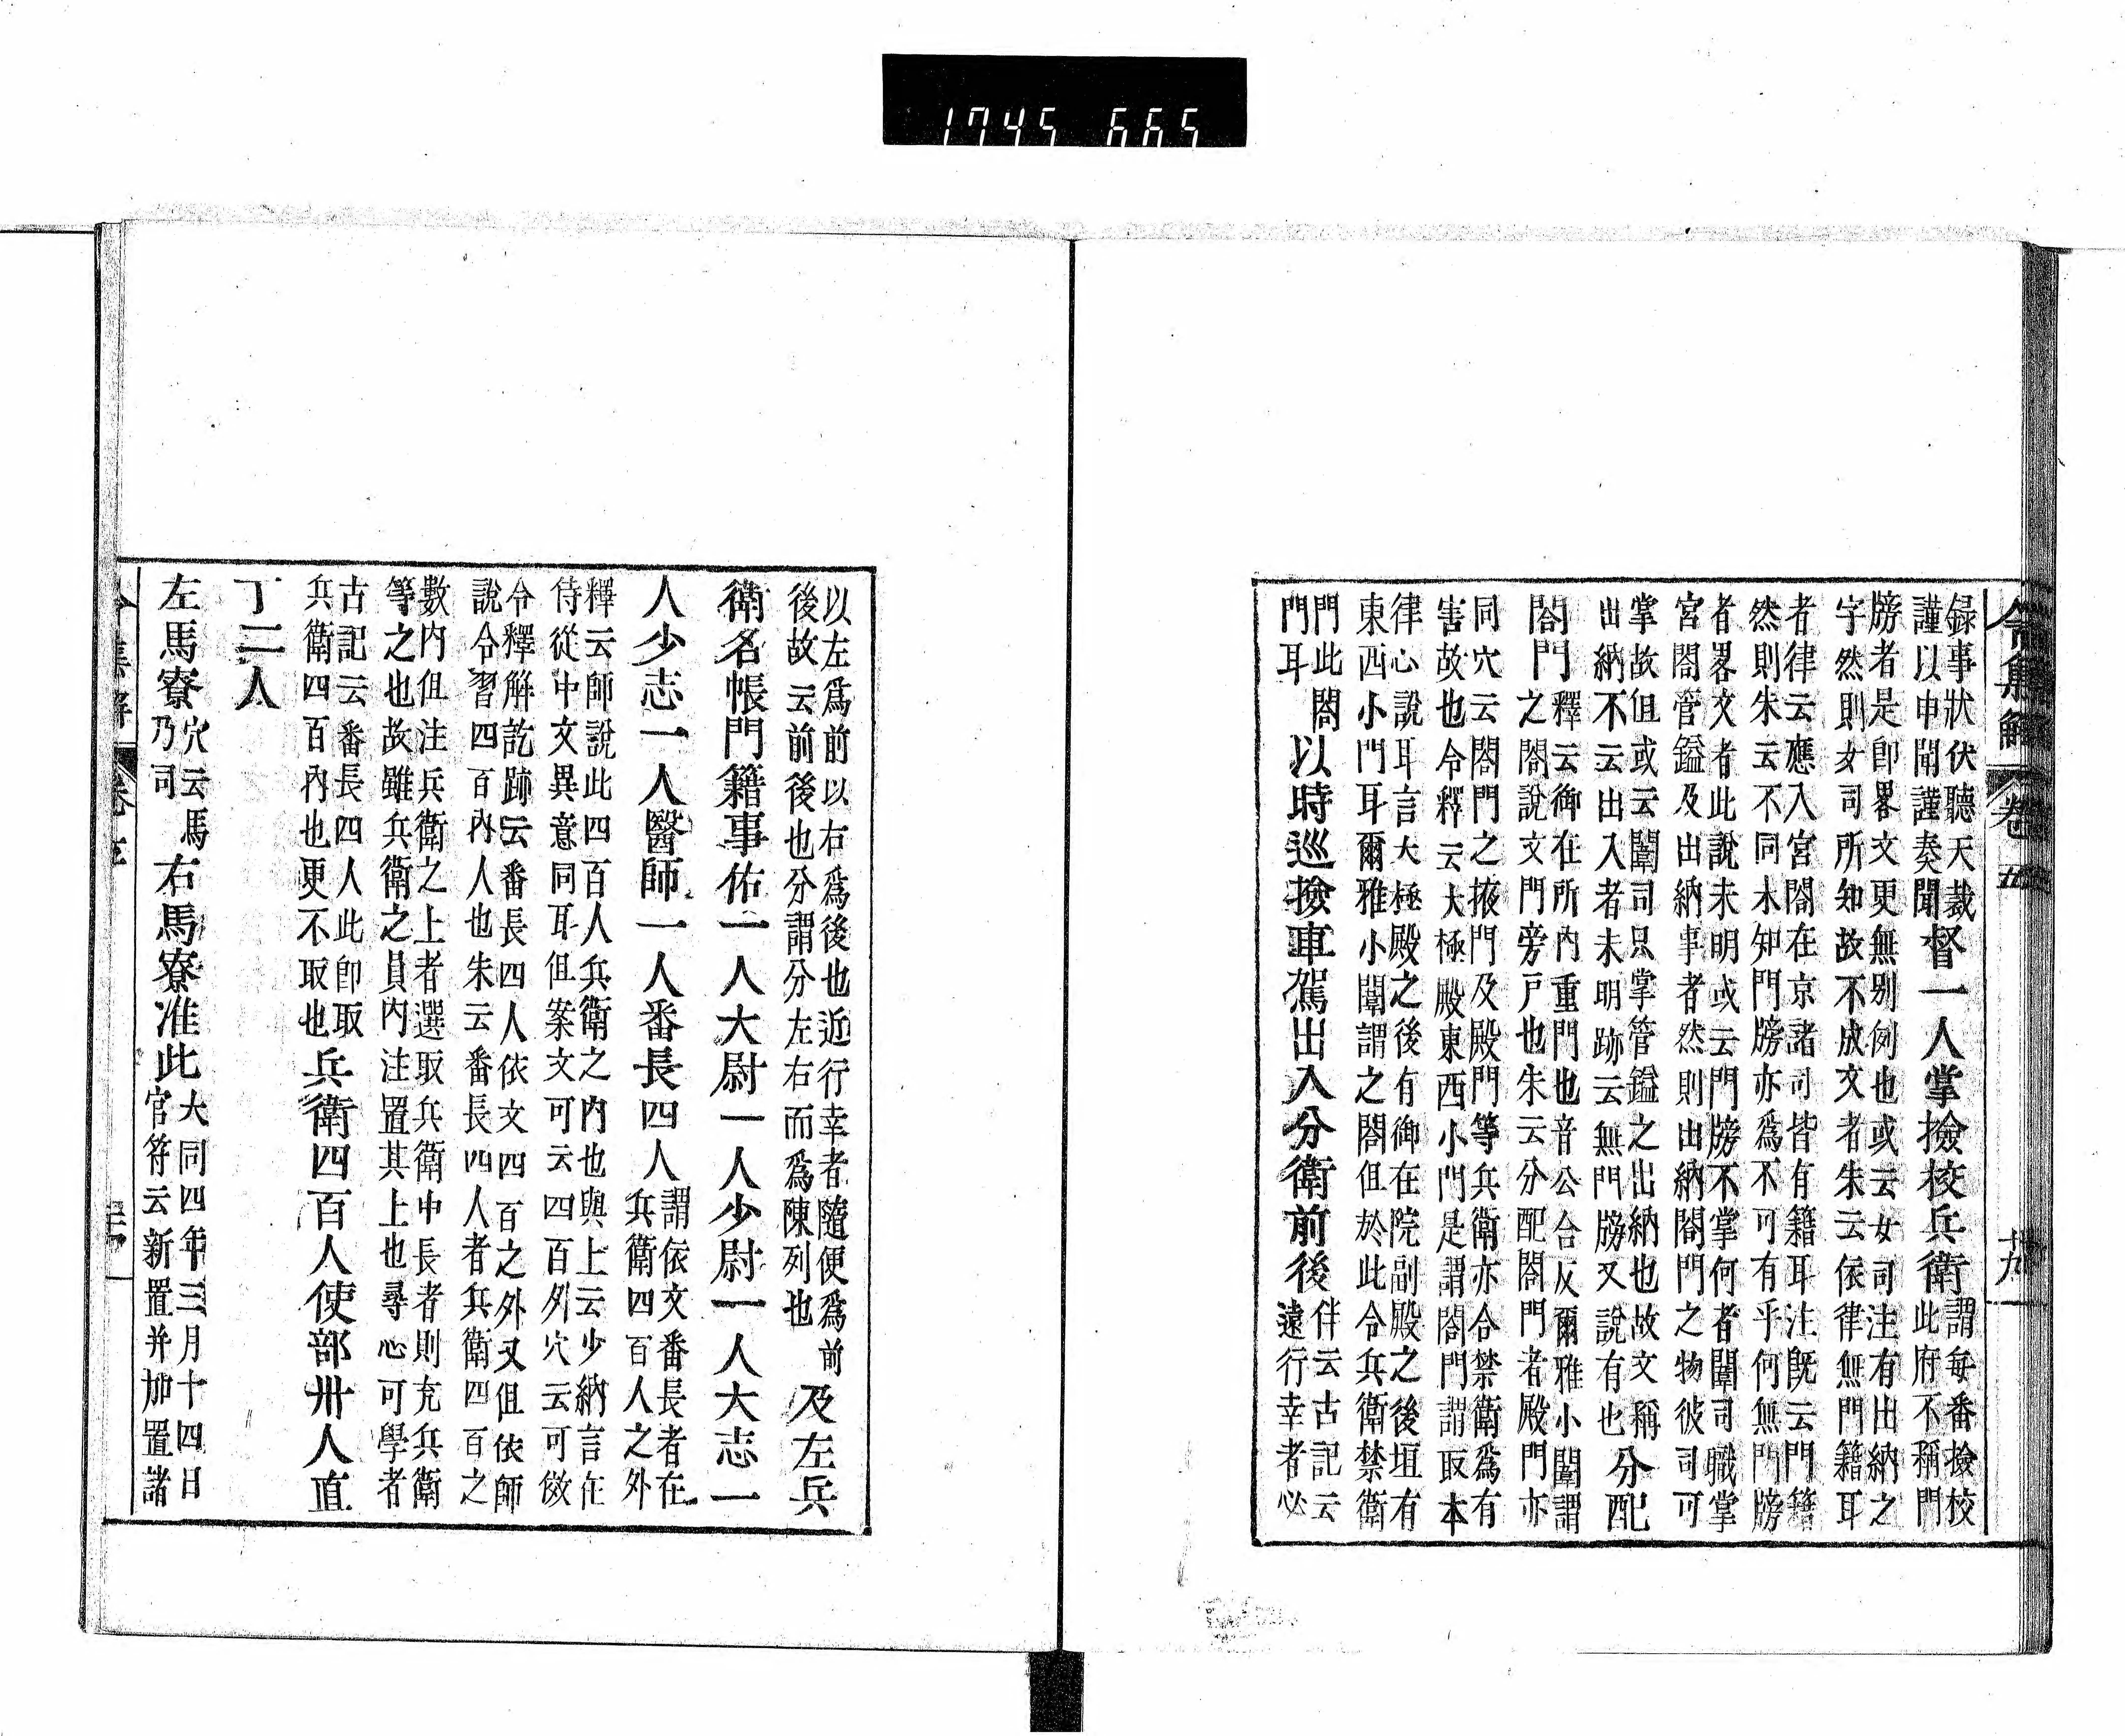 1745 665
令集解 卷五 廿九
録事狀伏聽天裁
謹以申聞謹奏聞
督一人掌撿校兵衛
謂每番撿校
此府不稱門
牓者是卽畧文更無别例也或云女司注有出納之
字然則女司所知故不成文者朱云依律無門籍耳
者律云應入宮閤在京諸司皆有籍耳注旣云門籍
然則朱云不同木知門牓亦爲不可有乎何無門牓
者畧文者此說未明或云門牓不掌何者闈司職掌
宮閤管鎰及出納事者然則出納閤門之物彼司可
掌故但或云闈司只掌管鎰之出納也故文稱
出納不云出入者未明跡云無門牓又說有也
分配
閤門
釋云御在所內重門也音公合反爾雅小闈謂
之閤說文門旁戸也朱云分配閤門者殿門亦
同穴云閤門之掖門及殿門等兵衛亦合禁衛爲有
害故也令釋云大極殿東西小門是謂閤門謂取本
律心說耳言大極殿之後有御在院副殿之後垣有
東西小門耳爾雅小闈謂之閤但於此令兵衛禁衛
門此閤
門耳
以時巡撿車駕出入分衛前後
伴云古記云
遠行幸者必
以左爲前以右爲後也近行幸者隨便爲前
後故云前後也分謂分左右而爲陳列也
及左兵
衛名帳門籍事佑一人大尉一人少尉一人大志一
人少志一人醫師一人番長四人
謂依文番長者在
兵衛四百人之外
釋云師說此四百人兵衛之內也與上云少納言在
侍從中文異意同耳但案文可云四百外穴云可倣
令釋解訖跡云番長四人依文四百之外又但依師
說令習四百內人也朱云番長四人者兵衛四百之
數內但注兵衛之上者選取兵衛中長者則充兵衛
等之也故雖兵衛之員內注置其上也尋心可學者
古記云番長四人此卽取
兵衛四百內也更不取也
兵衛四百人使部卅人直
丁二人
左馬寮
穴云馬
乃司
右馬寮准此
大同四年三月十四日
官符云新置并加置諸